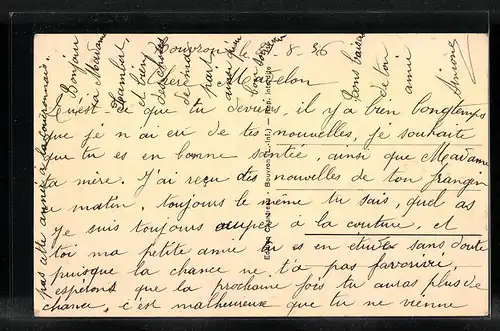 Bouvron le 8.36
Chère Mavelon
Qu'est ce que tu deviens, il y a bien longtemps
que je n'ai eu de tes nouvelles, je souhaite
que tu es en bonne santée, ainsi que Madame
ta mère. J'ai reçu des nouvelles de ton frangin
ce matin, toujours le même tu sais, quel as
Je suis toujours occupée à la couture, et
toi ma petite amie tu es en étude sans doute
puisque la chance ne t'a pas favorisée,
espérons que la prochaine fois tu auras plus de
chance, c'est malheureux que tu ne vienne
pas cette année à la
Bonjour
à Madame
et bien
des choses
de ma
part
ainsi que
Bons baisers
de ton
amie
Simone
Bouvron (L.-Inf.) — Rep. interdite